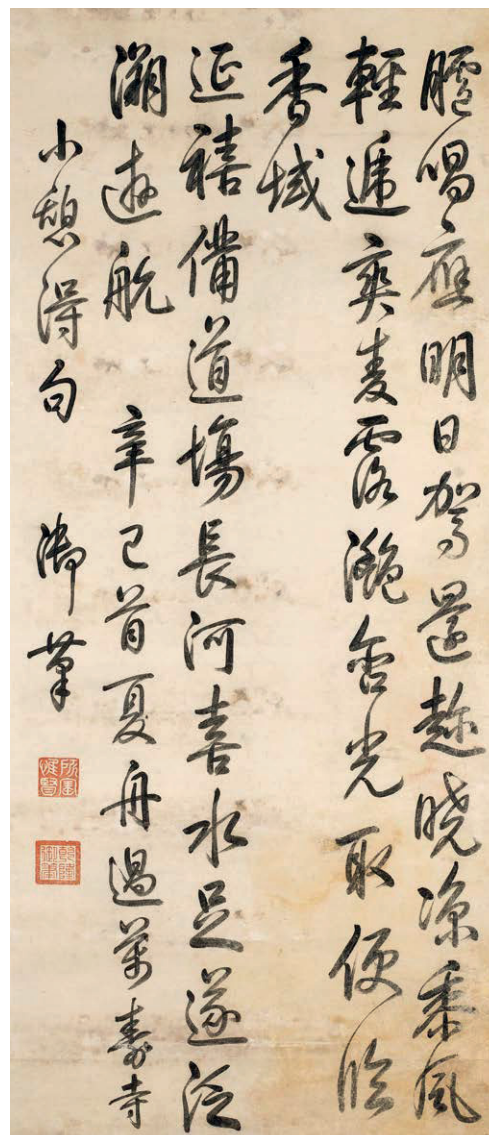 臚唱應明日駕還趂曉涼黍風
輕遞爽麥露灧含光取便臨
香域
延禧備道場長河喜水足遂泛
溯遊航 辛巳首夏舟過萬壽寺
小憩得句 御筆
所寶惟賢
乾隆御筆